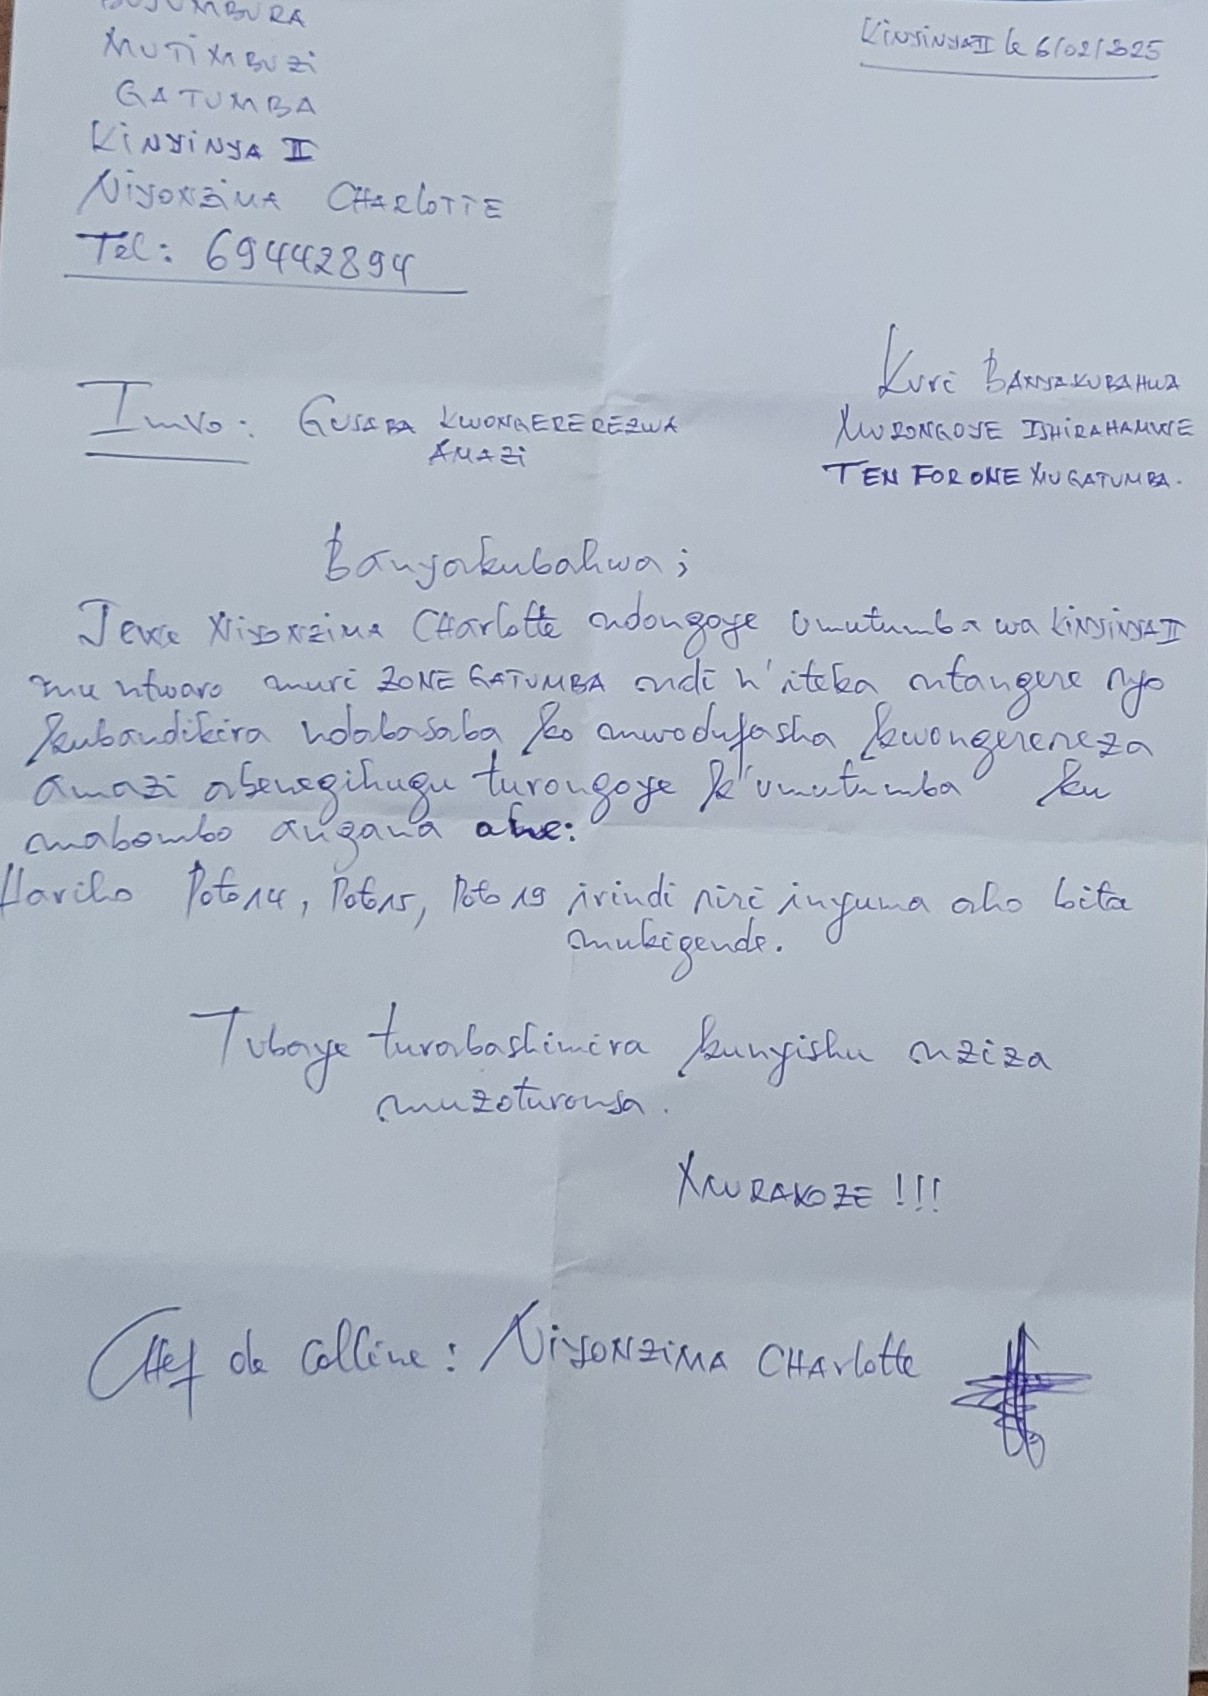 BUJUMBURA
MUTIMBUZI
GATUMBA
KINYINYA II
NIYONZIMA CHARLOTTE
Tél: 69442894
KINYINYA II le 6/02/2025
Kuri BANYAKUBAHWA
MURONGOYE ISHIRAHAMWE
TEN FOR ONE MUGATUMBA.
Imvo: GUSABA KWONGEREREZWA
AMAZI
Banyakubahwa;
Jewe NIYONZIMA CHArlotte ndongoye Umutumba wa KINYINYA II
mu ntwaro muri ZONE GATUMBA ndi n'iteka ntangere ryo
kubandikira ndabasaba ko mwodufasha kwongerereza
amazi abenegihugu turongoye k'umutumba ku
mabombo angana ahe:
Hariho Poto 14, Poto 15, Poto 19 irindi riri inyuma aho bita
mukigende.
Tubaye turabashimira kunyishu nziza
muzoturonsa.
MURAKOZE !!!
CHef de Colline: NIYONZIMA CHArlotte